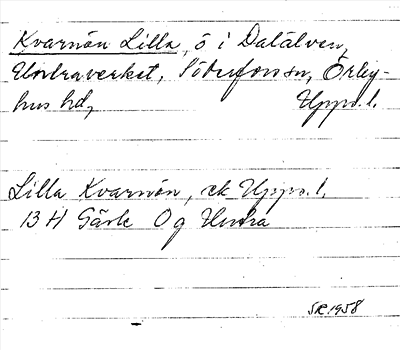 Kvarnön Lilla, ö i Dalälven,
Untraverket, Söderfors sn, Örby-
hus hd, Upps. l.
Lilla Kvarnön, ek Upps. l.
13 H Gävle Og Untra
SR 1958